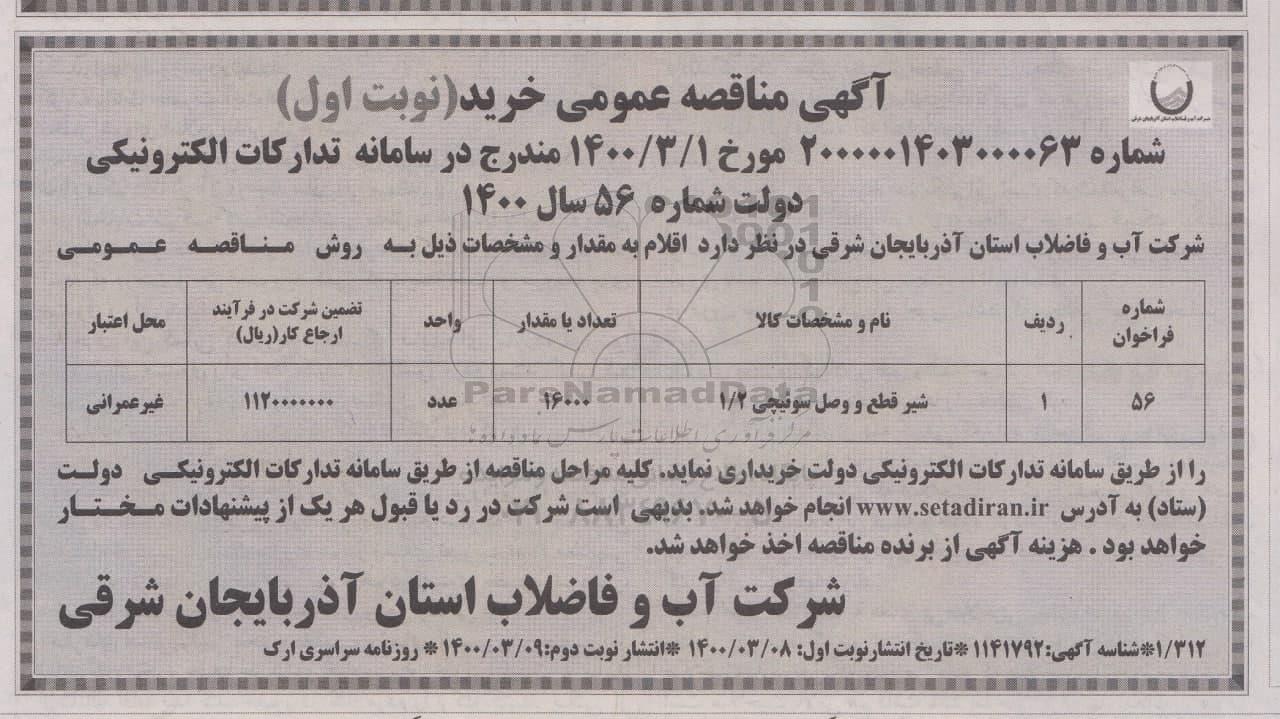 آگهی مناقصه عمومی خرید(نوبت اول)
شماره ۲۰۰۰۰۰۱۴۰۳۰۰۰۰۶۳ مورخ ۱۴۰۰/۳/۱ مندرج در سامانه تدارکات الکترونیکی
دولت شماره ۵۶ سال ۱۴۰۰
شرکت آب و فاضلاب استان آذربایجان شرقی در نظر دارد اقلام به مقدار و مشخصات ذیل به روش مناقصه عمومی
شماره فراخوان ردیف نام و مشخصات کالا تعداد یا مقدار واحد تضمین شرکت در فرآیند ارجاع کار(ریال) محل اعتبار
۵۶ ۱ شیر قطع و وصل سوئیچی ۱/۲ ۱۶۰۰۰ عدد ۱۱۲۰۰۰۰۰۰۰ غیرعمرانی
ParsNamadData
مرکز فرآوری اطلاعات پارس نماد داده ها
را از طریق سامانه تدارکات الکترونیکی دولت خریداری نماید. کلیه مراحل مناقصه از طریق سامانه تدارکات الکترونیکی دولت
(ستاد) به آدرس www.setadiran.ir انجام خواهد شد. بدیهی است شرکت در رد یا قبول هر یک از پیشنهادات مختار
خواهد بود . هزینه آگهی از برنده مناقصه اخذ خواهد شد.
شرکت آب و فاضلاب استان آذربایجان شرقی
۱/۳۱۲*شناسه آگهی:۱۱۴۱۷۹۲ *تاریخ انتشارنوبت اول: ۱۴۰۰/۰۳/۰۸ *انتشار نوبت دوم:۱۴۰۰/۰۳/۰۹ * روزنامه سراسری ارک